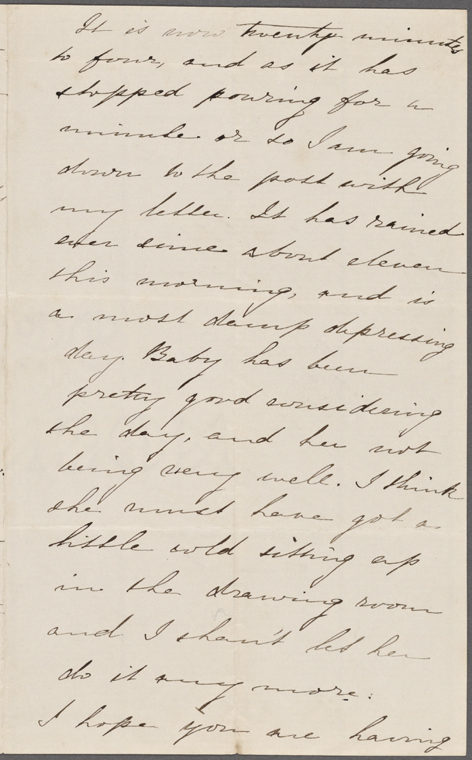 It is now twenty minutes
to four, and as it has
stopped pouring for a
minute or so I am going
down to the post with
my letter. It has rained
ever since about eleven
this morning, and is
a most damp depressing
day. Baby has been
pretty good considering
the day, and her not
being very well. I think
she must have got a
little cold sitting up
in the drawing room
and I shan't let her
do it any more.
I hope you are having